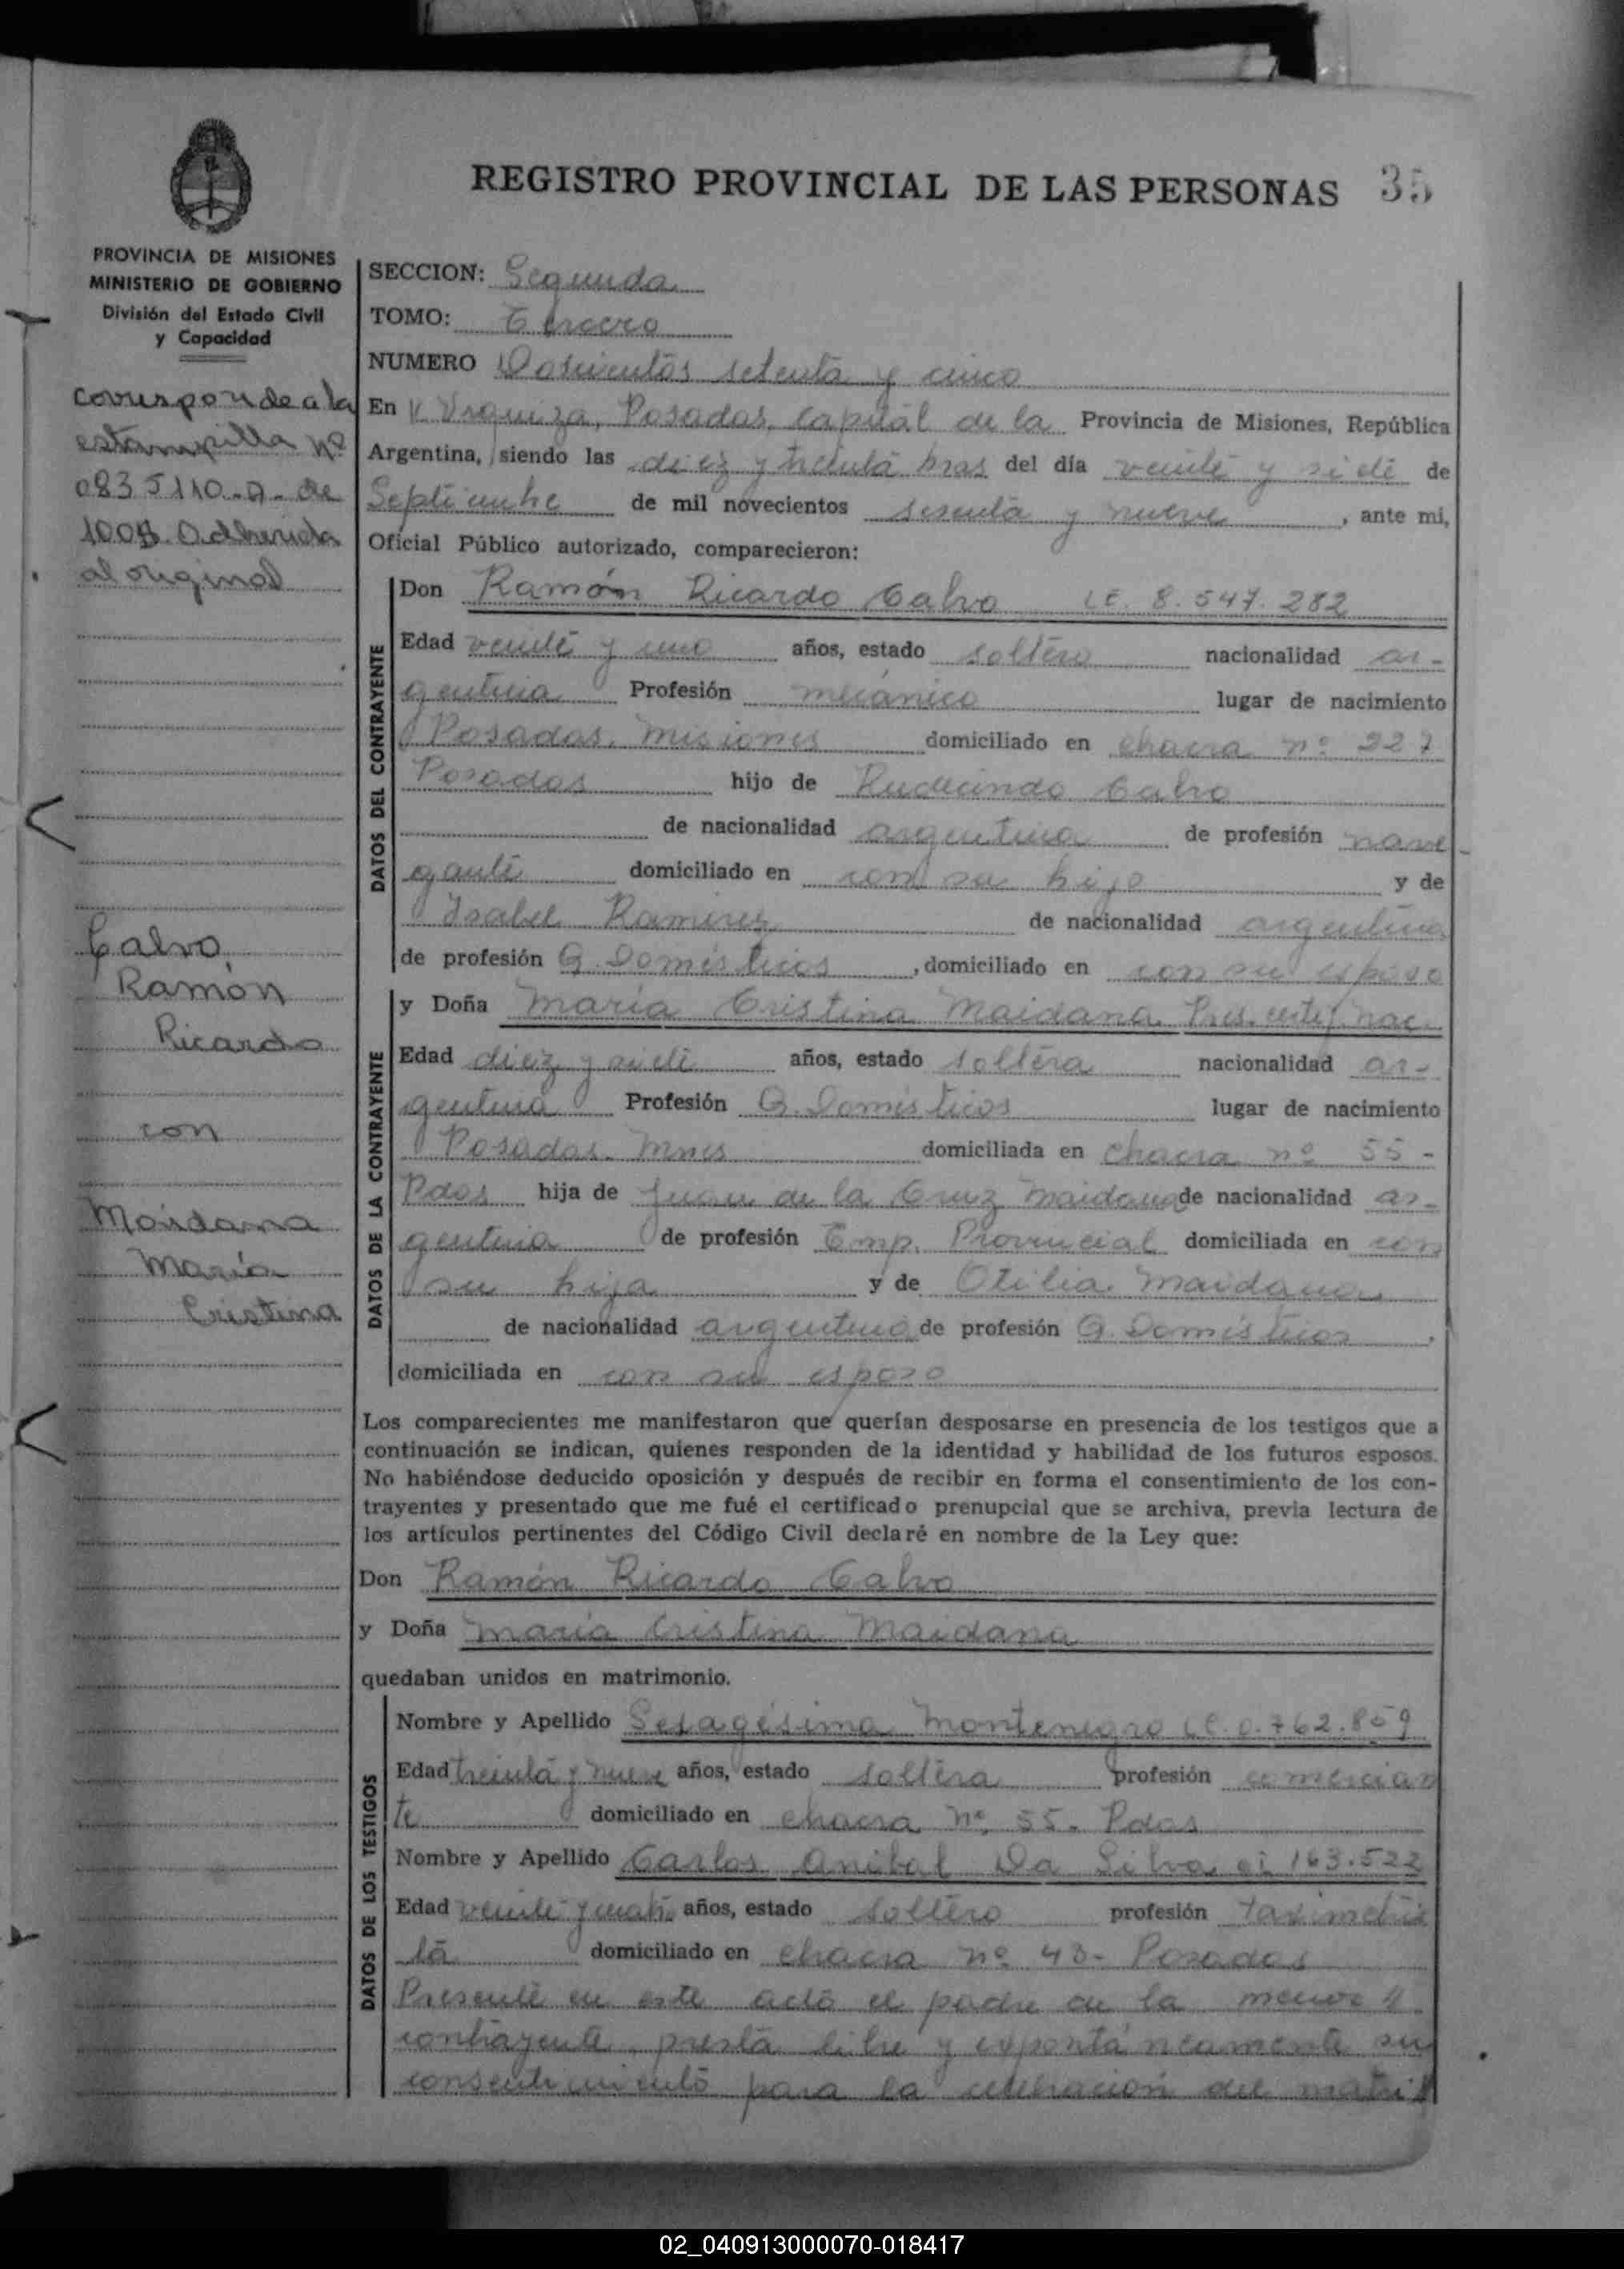 REGISTRO PROVINCIAL DE LAS PERSONAS 35
PROVINCIA DE MISIONES
MINISTERIO DE GOBIERNO
División del Estado Civil
y Capacidad
corresponde a la
estampilla Nº
0835110-A- de
100$ Adherida
al original
Calvo
Ramón
Ricardo
con
Maidana
María
Cristina
SECCION: Segunda
TOMO: Tercero
NUMERO Doscientos setenta y cinco
En V. Urquiza, Posadas, capital de la Provincia de Misiones, República
Argentina, siendo las diez y treinta hras del día veinte y siete de
Septiembre de mil novecientos sesenta y nueve, ante mi,
Oficial Público autorizado, comparecieron:
DATOS DEL CONTRAYENTE
Don Ramón Ricardo Calvo LE. 8.547.282
Edad veinte y uno años, estado soltero nacionalidad ar-
gentina Profesión mecánico lugar de nacimiento
Posadas, Misiones domiciliado en chacra nº 227
Posadas hijo de Rudecindo Calvo
de nacionalidad argentina de profesión nave-
gante domiciliado en con su hijo y de
Isabel Ramirez de nacionalidad argentina
de profesión Q. Domésticos, domiciliado en con su esposo
DATOS DE LA CONTRAYENTE
y Doña María Cristina Maidana Pres. certif. nac.
Edad diez y siete años, estado soltera nacionalidad ar-
gentina Profesión Q. Domésticos lugar de nacimiento
Posadas. Mnes domiciliada en chacra nº 55-
Pdas hija de Juan de la Cruz Maidana de nacionalidad ar-
gentina de profesión Emp. Provincial domiciliada en con
su hija y de Otilia Maidana
de nacionalidad argentina de profesión Q. Domésticos,
domiciliada en con su esposo
Los comparecientes me manifestaron que querían desposarse en presencia de los testigos que a
continuación se indican, quienes responden de la identidad y habilidad de los futuros esposos.
No habiéndose deducido oposición y después de recibir en forma el consentimiento de los con-
trayentes y presentado que me fué el certificado prenupcial que se archiva, previa lectura de
los artículos pertinentes del Código Civil declaré en nombre de la Ley que:
Don Ramón Ricardo Calvo
y Doña María Cristina Maidana
quedaban unidos en matrimonio.
DATOS DE LOS TESTIGOS
Nombre y Apellido Setagésima Montenegro 762.859
Edad treinta y nueve años, estado soltera profesión comercian
te domiciliado en chacra nº 55. Pdas
Nombre y Apellido Carlos Anibal Da Silva ci 163.522
Edad veinte y cuatro años, estado soltero profesión taximetris
ta domiciliado en chacra nº 43- Posadas
Presente en este acto el padre de la menor
contrayente, presta libre y expontáneamente su
consentimiento para la celebración del matri
02_040913000070-018417